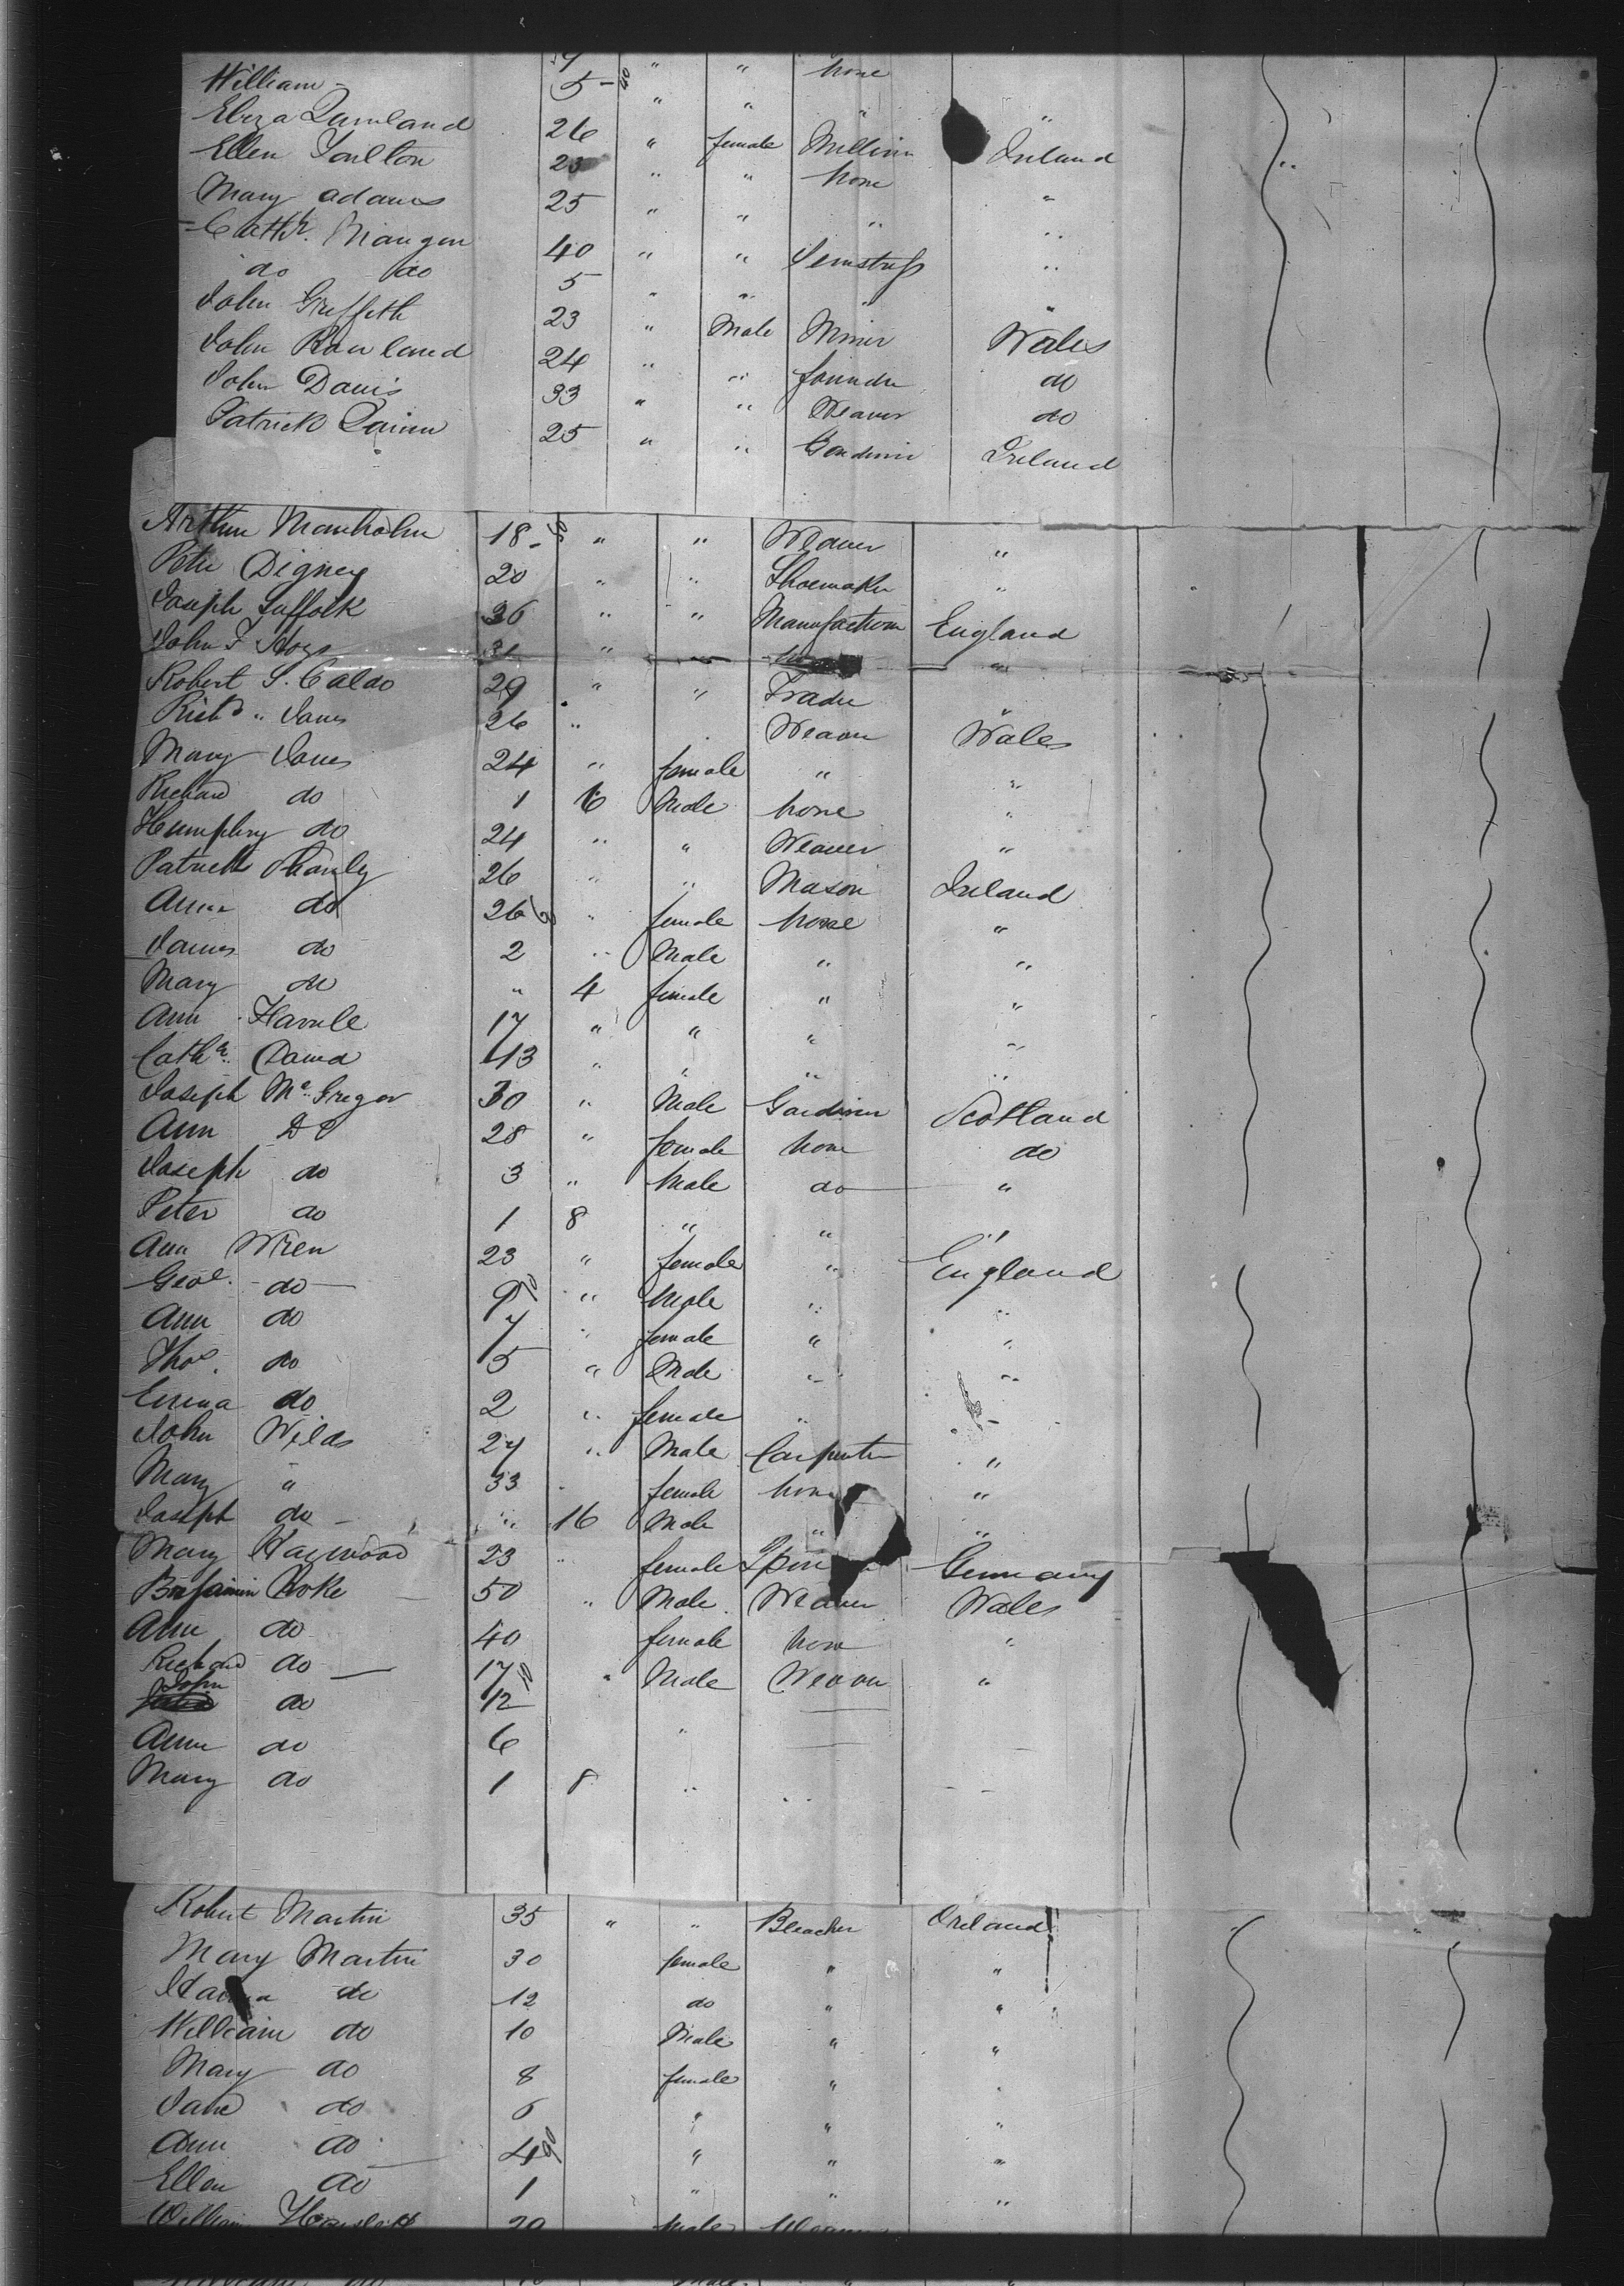 7 " " none
William 5 " " " "
Eliza 26 " female Ireland
Ellen 23 " " none "
Mary Adams 25 " " " "
Cathe. Mangen 40 " " Semstress "
do do 5 " " " "
John Griffeth 23 " Male Miner Wales
John Rowland 24 " " founder do
John Davis 33 " " Weaver do
Patrick Quinn 25 " " Gardiner Ireland
Arthur 18 " " Weaver "
Peter Digney 20 " " Shoemaker "
Joseph Suffolk 36 " " England
John F 31 " "
Robert S. Caldo 29 " " Trader "
Richd. Jones 26 " Weaver Wales
Mary Jones 24 " female " "
Richard do 1 6 Male none "
Humphry do 24 " " Weaver "
Patrick 26 " " Mason Ireland
Anna do 26 " female none "
James do 2 " Male " "
Mary do " 4 female " "
Ann 17 " " " "
Cathe. David 43 " " " "
Joseph Mc.Gregor 30 " Male Gardiner Scotland
Ann Do 28 " female none do
Joseph do 3 " Male do "
Peter do 1 8 " " "
Ann Wren 23 " female " England
Geoe. do 9 " Male " "
Ann do 7 " female " "
Thos. do 5 " Male " "
Emma do 2 " female " "
John Wilds 27 " Male Carpenter "
Mary " 33 female none "
Joseph do " 16 Male " "
Mary Haywood 23 " female Germany
Benjamin 50 " Male Weaver Wales
Ann do 40 female none "
Richard do 17 " Male Weaver "
John do 12
Anne do 6 "
Mary do 1 8 "
Robert Martin 35 " " Bleacher Ireland
Mary Martin 30 female " "
do 12 do " "
William do 10 Male " "
Mary do 8 female " "
Jane do 6 " " "
Ann do 4 " " "
Ellen do 1 " " "
William 20 Male Weaver